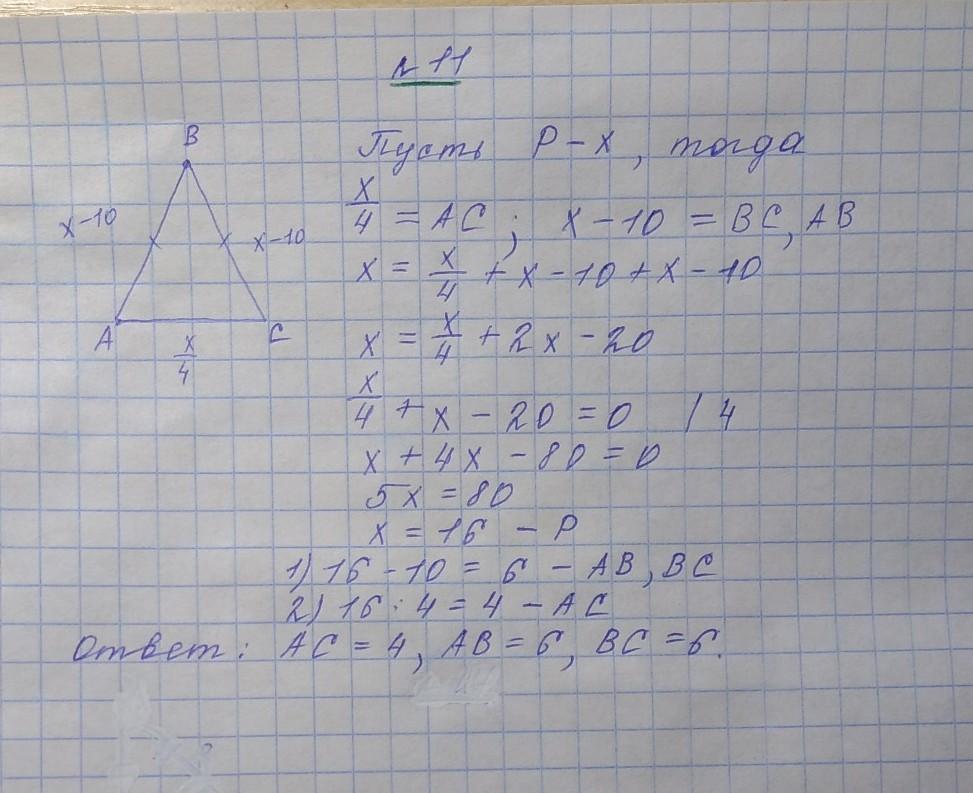 №11
B
x-10
x-10
A
C
x/4
Пусть P-x, тогда
x/4 = AC; x-10 = BC, AB
x = x/4 + x-10+x-10
x = x/4 + 2x-20
x/4 + x - 20 = 0 / 4
x + 4x - 80 = 0
5x = 80
x = 16 - P
1) 16 - 10 = 6 - AB, BC
2) 16 : 4 = 4 - AC
Ответ: AC = 4, AB = 6, BC = 6.